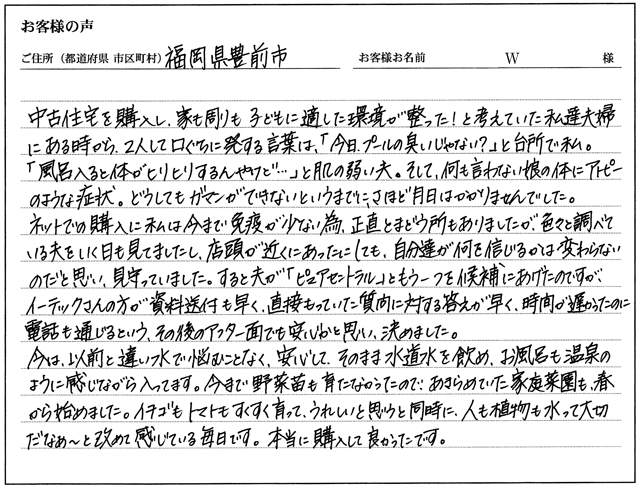 お客様の声
ご住所（都道府県 市区町村） 福岡県豊前市 お客様お名前 W 様
中古住宅を購入し、家も周りも子どもに適した環境が整った！と考えていた私達夫婦
にある時から、2人して口ぐちに発する言葉は、「今日、プールの臭いじゃない？」と台所で私。
「風呂入ると体がヒリヒリするんやけど…」と肌の弱い夫。そして、何も言わない娘の体にアトピー
のような症状。どうしてもガマンができないというまでに、さほど月日はかかりませんでした。
ネットでの購入に私は今まで免疫が少ない為、正直とまどう所もありましたが、色々と調べて
いる夫をいく日も見てましたし、店頭が近くにあったにしても、自分達が何を信じるかは変わらない
のだと思い、見守っていました。すると夫が「ピュアセントラル」ともう一つを候補にあげたのですが、
イーテックさんの方が資料送付も早く、直接もっていた質問に対する答えが早く、時間が遅かったのに
電話も通じるという、その後のアフター面でも安心かと思い、決めました。
今は、以前と違い水で悩むことなく、安心して、そのまま水道水を飲め、お風呂も温泉の
ように感じながら入ってます。今まで野菜苗も育たなかったので、あきらめていた家庭菜園も、春
から始めました。イチゴもトマトもすくすく育って、うれしいと思うと同時に、人も植物も水って大切
だなあ〜と改めて感じている毎日です。本当に購入して良かったです。